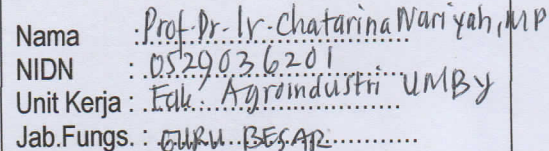 Nama : Prof. Dr. Ir. Chatarina Wariyah, MP
NIDN : 0529036201
Unit Kerja : Fak. Agroindustri UMBY
Jab.Fungs. : GURU BESAR